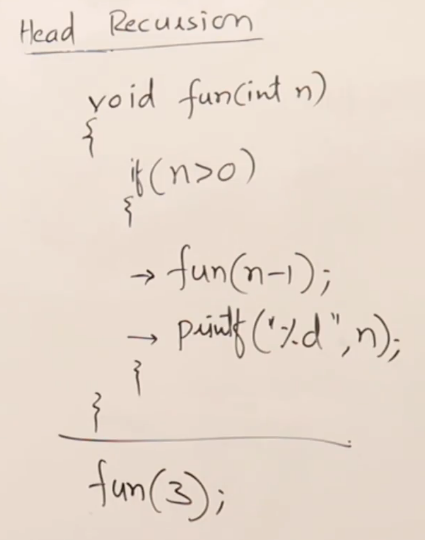 Head Recursion
void fun(int n)
{
if(n>0)
{
→ fun(n-1);
→ printf("%d",n);
}
}
fun(3);